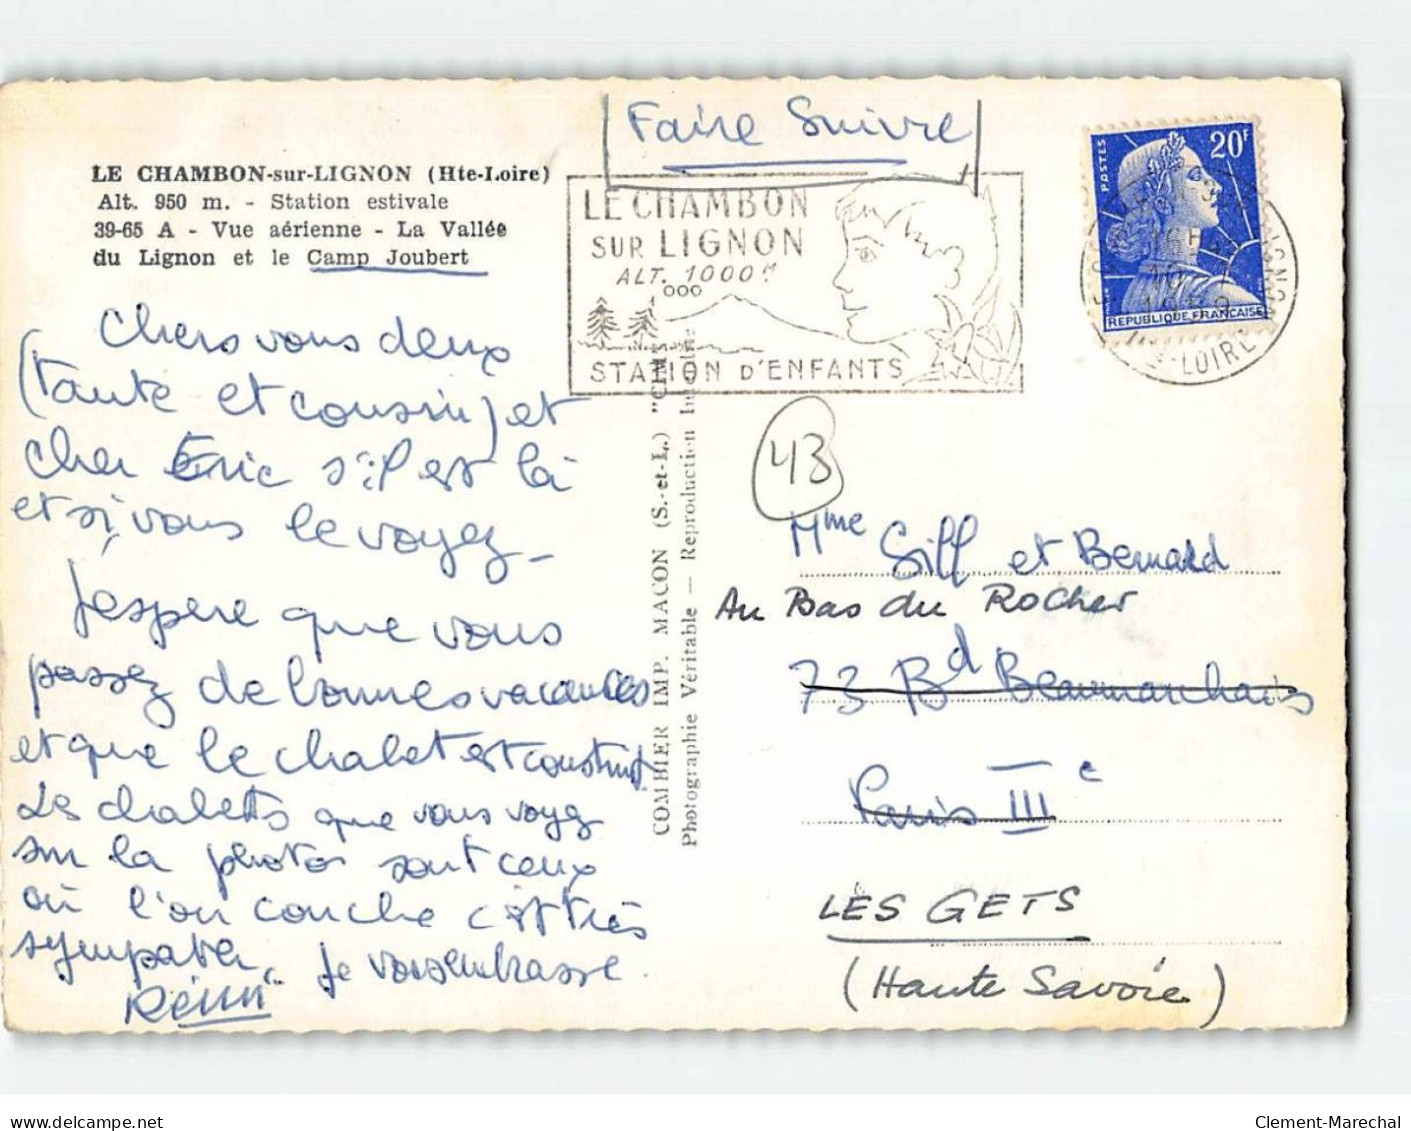 Faire Suivre
LE CHAMBON-sur-LIGNON (Hte-Loire)
Alt. 950 m. - Station estivale
39-65 A - Vue aérienne - La Vallée
du Lignon et le Camp Joubert
LE CHAMBON
SUR LIGNON
ALT. 1000 M
STATION D'ENFANTS
POSTES
20F
REPUBLIQUE FRANÇAISE
LIGNON
LOIRE
1959
Chers vous deux
(tante et cousin) et
cher Eric s'il est là
et si vous le voyez -
J'espère que vous
passez de bonnes vacances
et que le chalet est construit
Les chalets que vous voyez
sur la photo sont ceux
où l'on couche c'est très
sympath. Je vous embrasse.
Rémi
COMBIER IMP. MACON (S.-et-L.) "CIM"
Photographie Véritable — Reproduction
43
Mme Sill et Bernard
Au Bas du Rocher
73 Bd Beaumarchais
Paris IIIe
LES GETS
(Haute Savoie)
delcampe.net
Clement-Marechal